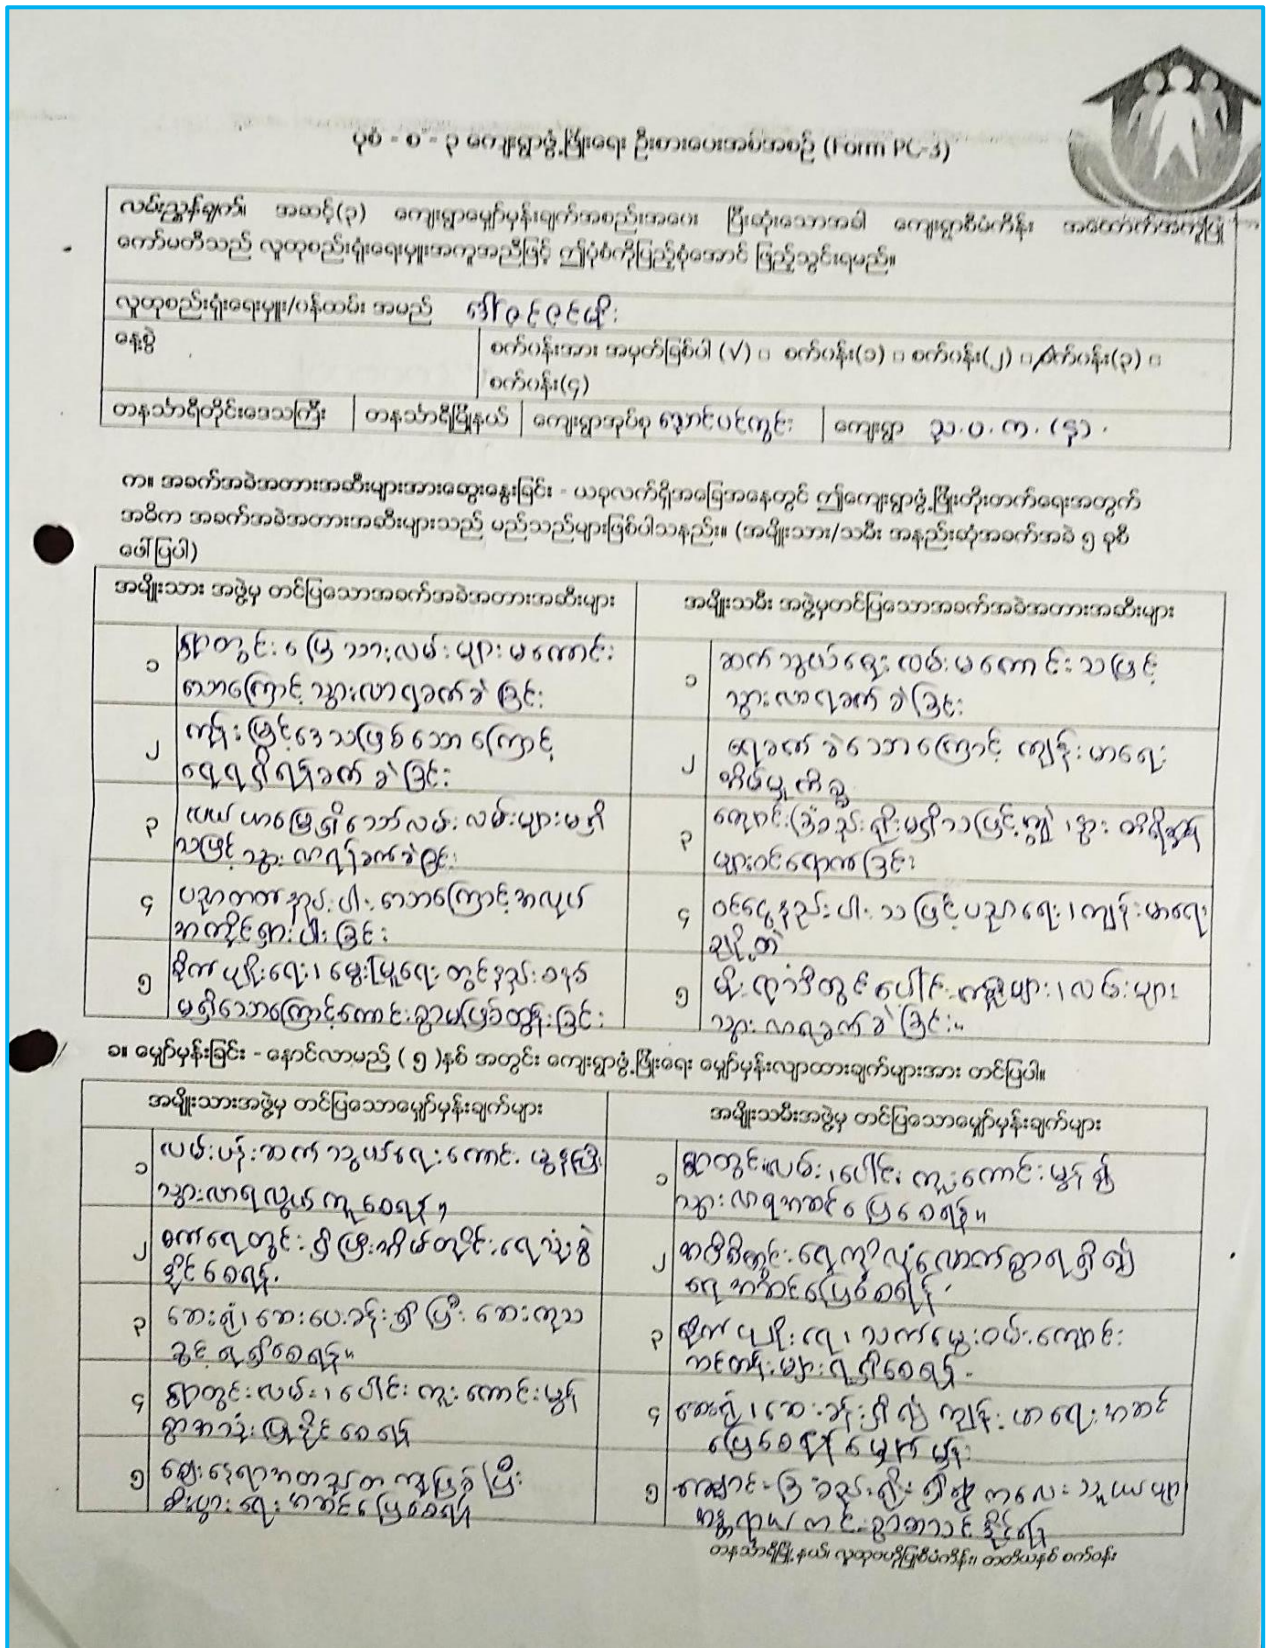 ပုံစံ - စ - ၃ ကျေးရွာဖွံ့ဖြိုးရေး ဦးစားပေးအစီအစဉ် (Form PC-3)
လမ်းညွှန်ချက်။ အဆင့်(၃) ကျေးရွာမျှော်မှန်းချက်အစည်းအဝေး ပြီးဆုံးသောအခါ ကျေးရွာစီမံကိန်း အထောက်အကူပြု
ကော်မတီသည် လူထုစည်းရုံးရေးမှူးအကူအညီဖြင့် ဤပုံစံကိုပြည့်စုံအောင် ဖြည့်သွင်းရမည်။
လူထုစည်းရုံးရေးမှူး/ဝန်ထမ်း အမည် ဒေါ်ဇင်ဇင်မိုး
နေ့စွဲ
စက်ဝန်းအား အမှတ်ခြစ်ပါ (√) □ စက်ဝန်း(၁) □ စက်ဝန်း(၂) □ စက်ဝန်း(၃) □
စက်ဝန်း(၄)
တနင်္သာရီတိုင်းဒေသကြီး တနင်္သာရီမြို့နယ် ကျေးရွာအုပ်စု ညောင်ပင်ကွင်း ကျေးရွာ ည.ပ.က.
က။ အခက်အခဲအတားအဆီးများအားဆွေးနွေးခြင်း - ယခုလက်ရှိအခြေအနေတွင် ဤကျေးရွာဖွံ့ဖြိုးတိုးတက်ရေးအတွက်
အဓိက အခက်အခဲအတားအဆီးများသည် မည်သည်များဖြစ်ပါသနည်း။ (အမျိုးသား/သမီး အနည်းဆုံးအခက်အခဲ ၅ ခုစီ
ဖော်ပြပါ)
အမျိုးသား အဖွဲ့မှ တင်ပြသောအခက်အခဲအတားအဆီးများ
အမျိုးသမီး အဖွဲ့မှတင်ပြသောအခက်အခဲအတားအဆီးများ
၁ ရွာတွင်း မြေသားလမ်းများ မကောင်း
သောကြောင့် သွားလာရခက်ခဲခြင်း
၁ ဆက်သွယ်ရေး လမ်းမကောင်းသဖြင့်
သွားလာရခက်ခဲခြင်း
၂ ကုန်းမြင့်ဒေသဖြစ်သောကြောင့်
ရေရရှိရန်ခက်ခဲခြင်း
၂ ရေခက်ခဲသောကြောင့် ကျန်းမာရေး
အိမ်မှုကိစ္စ
၃ လယ်ယာမြေရှိသော်လည်း လမ်းများမရှိ
သဖြင့် သွားလာရန်ခက်ခဲခြင်း
၃ ကျောင်းခြံစည်းရိုးမရှိသဖြင့် ကျွဲ၊ နွား တိရိစ္ဆာန်
များဝင်ရောက်ခြင်း
၄ ပညာတတ်နည်းပါးသောကြောင့် အလုပ်
အကိုင်ရှားပါးခြင်း
၄ ဝင်ငွေနည်းပါးသဖြင့် ပညာရေး၊ ကျန်းမာရေး
ချို့တဲ့
၅ စိုက်ပျိုးရေး၊ မွေးမြူရေးတွင် နည်းစနစ်
မရှိသောကြောင့်ကောင်းစွာမဖြစ်ထွန်းခြင်း
၅ မိုးရာသီတွင် ပေါင်းကူးများ၊ လမ်းများ
သွားလာရခက်ခဲခြင်း။
ခ။ မျှော်မှန်းခြင်း - နောင်လာမည့် ( ၅ )နှစ် အတွင်း ကျေးရွာဖွံ့ဖြိုးရေး မျှော်မှန်းလျာထားချက်များအား တင်ပြပါ။
အမျိုးသားအဖွဲ့မှ တင်ပြသောမျှော်မှန်းချက်များ
အမျိုးသမီးအဖွဲ့မှ တင်ပြသောမျှော်မှန်းချက်များ
၁ လမ်းပန်းဆက်သွယ်ရေးကောင်းမွန်ပြီး
သွားလာရလွယ်ကူစေရန်။
၁ ရွာတွင်းလမ်း၊ ပေါင်းကူးကောင်းမွန်၍
သွားလာရအဆင်ပြေစေရန်။
၂ စက်ရေတွင်းရှိပြီးအိမ်တိုင်းရေသုံးစွဲ
နိုင်စေရန်
၂ အဝီစိတွင်းရေကိုလုံလောက်စွာရရှိ၍
ရေအဆင်ပြေစေရန်
၃ ဆေးရုံ၊ ဆေးပေးခန်းရှိပြီး ဆေးကုသ
ခွင့်ရရှိစေရန်။
၃ စိုက်ပျိုးရေး၊ သက်မွေးဝမ်းကျောင်း
သင်တန်းများရရှိစေရန်
၄ ရွာတွင်းလမ်း၊ ပေါင်းကူးကောင်းမွန်
စွာအသုံးပြုနိုင်စေရန်
၄ ဆေးရုံ၊ ဆေးခန်းရှိ၍ ကျန်းမာရေးအဆင်
ပြေစေရန်မျှော်မှန်း
၅ ဈေးနေရာအတည်တကျဖြစ်ပြီး
စီးပွားရေးအဆင်ပြေစေရန်
၅ ကျောင်းခြံစည်းရိုးရှိ၍ ကလေးသူငယ်များ
အန္တရာယ်ကင်းစွာစာသင်နိုင်ရန်
တနင်္သာရီမြို့နယ်၊ လူထုဗဟိုပြုစီမံကိန်း၊ တတိယနှစ် စက်ဝန်း